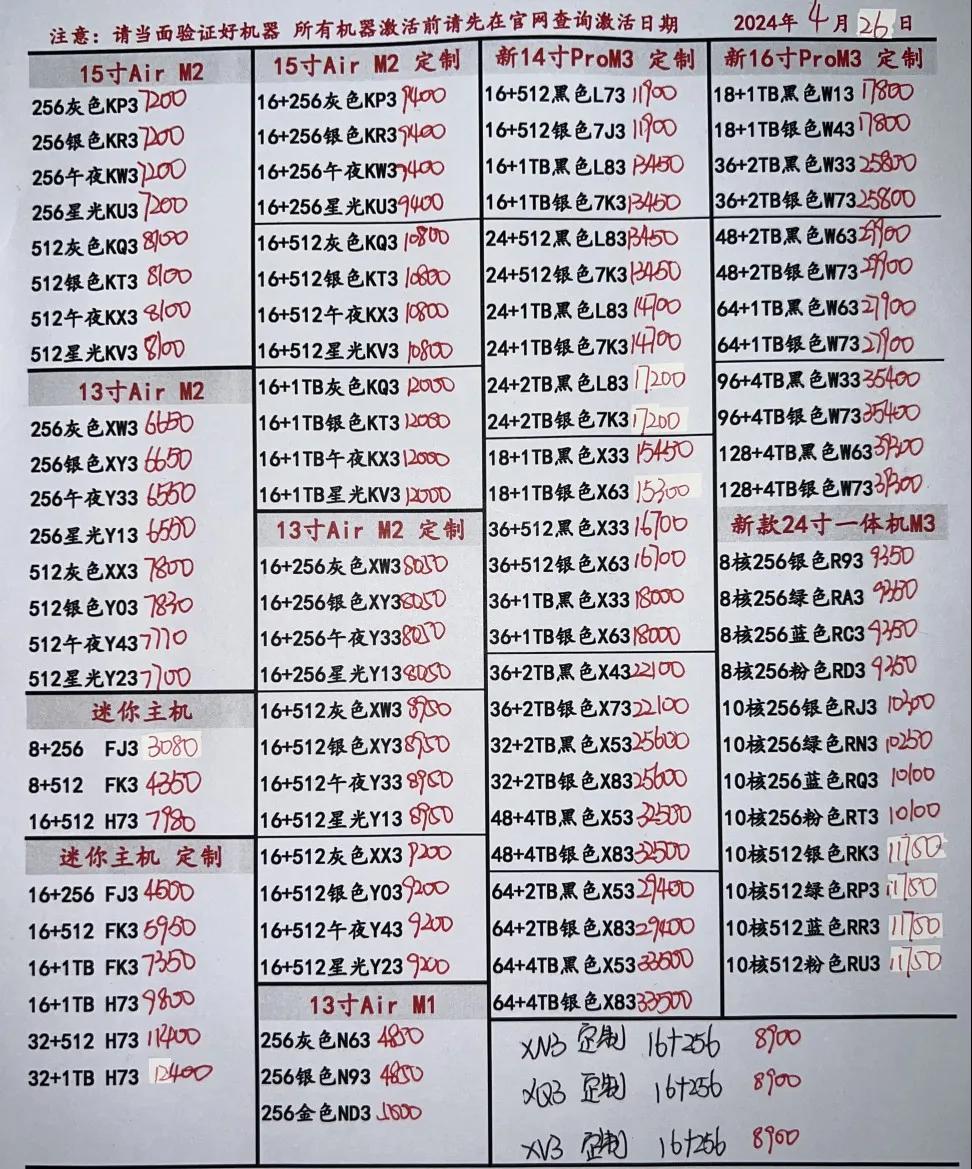 注意: 请当面验证好机器 所有机器激活前请先在官网查询激活日期 2024年 4月 26日
15寸Air M2
256灰色KP3 7200
256银色KR3 7200
256午夜KW3 7200
256星光KU3 7200
512灰色KQ3 8100
512银色KT3 8100
512午夜KX3 8100
512星光KV3 8100
13寸Air M2
256灰色XW3 6650
256银色XY3 6650
256午夜Y33 6550
256星光Y13 6550
512灰色XX3 7800
512银色Y03 7830
512午夜Y43 7710
512星光Y23 7700
迷你主机
8+256 FJ3 3080
8+512 FK3 4350
16+512 H73 7980
迷你主机 定制
16+256 FJ3 4600
16+512 FK3 5950
16+1TB FK3 7350
16+1TB H73 9800
32+512 H73 11400
32+1TB H73 12400
15寸Air M2 定制
16+256灰色KP3 9400
16+256银色KR3 9400
16+256午夜KW3 9400
16+256星光KU3 9400
16+512灰色KQ3 10800
16+512银色KT3 10800
16+512午夜KX3 10800
16+512星光KV3 10800
16+1TB灰色KQ3 12000
16+1TB银色KT3 12080
16+1TB午夜KX3 12000
16+1TB星光KV3 12000
13寸Air M2 定制
16+256灰色XW3 8050
16+256银色XY3 8050
16+256午夜Y33 8050
16+256星光Y13 8050
16+512灰色XW3 8950
16+512银色XY3 8950
16+512午夜Y33 8950
16+512星光Y13 8950
16+512灰色XX3 9200
16+512银色Y03 9200
16+512午夜Y43 9200
16+512星光Y23 9200
13寸Air M1
256灰色N63 4850
256银色N93 4850
256金色ND3
新14寸ProM3 定制
16+512黑色L73 11900
16+512银色7J3 11900
16+1TB黑色L83 13450
16+1TB银色7K3 13450
24+512黑色L83 13450
24+512银色7K3 13450
24+1TB黑色L83 14700
24+1TB银色7K3 14700
24+2TB黑色L83 17200
24+2TB银色7K3 17200
18+1TB黑色X33 15450
18+1TB银色X63 15300
36+512黑色X33 16700
36+512银色X63 16700
36+1TB黑色X33 18000
36+1TB银色X63 18000
36+2TB黑色X43 22100
36+2TB银色X73 22100
32+2TB黑色X53 25600
32+2TB银色X83 25600
48+4TB黑色X53 32500
48+4TB银色X83 32500
64+2TB黑色X53 29400
64+2TB银色X83 29400
64+4TB黑色X53 33500
64+4TB银色X83 33500
新16寸ProM3 定制
18+1TB黑色W13 17800
18+1TB银色W43 17800
36+2TB黑色W33 25800
36+2TB银色W73 25800
48+2TB黑色W63 29900
48+2TB银色W73 29900
64+1TB黑色W63 27900
64+1TB银色W73 27900
96+4TB黑色W33 35400
96+4TB银色W73 35400
128+4TB黑色W63 39300
128+4TB银色W73 39300
新款24寸一体机M3
8核256银色R93 9350
8核256绿色RA3 9350
8核256蓝色RC3 9350
8核256粉色RD3 9250
10核256银色RJ3 10200
10核256绿色RN3 10250
10核256蓝色RQ3 10100
10核256粉色RT3 10100
10核512银色RK3 11750
10核512绿色RP3 11750
10核512蓝色RR3 11750
10核512粉色RU3 11750
XN3 定制 16+256 8900
XQ3 定制 16+256 8900
XV3 定制 16+256 8900